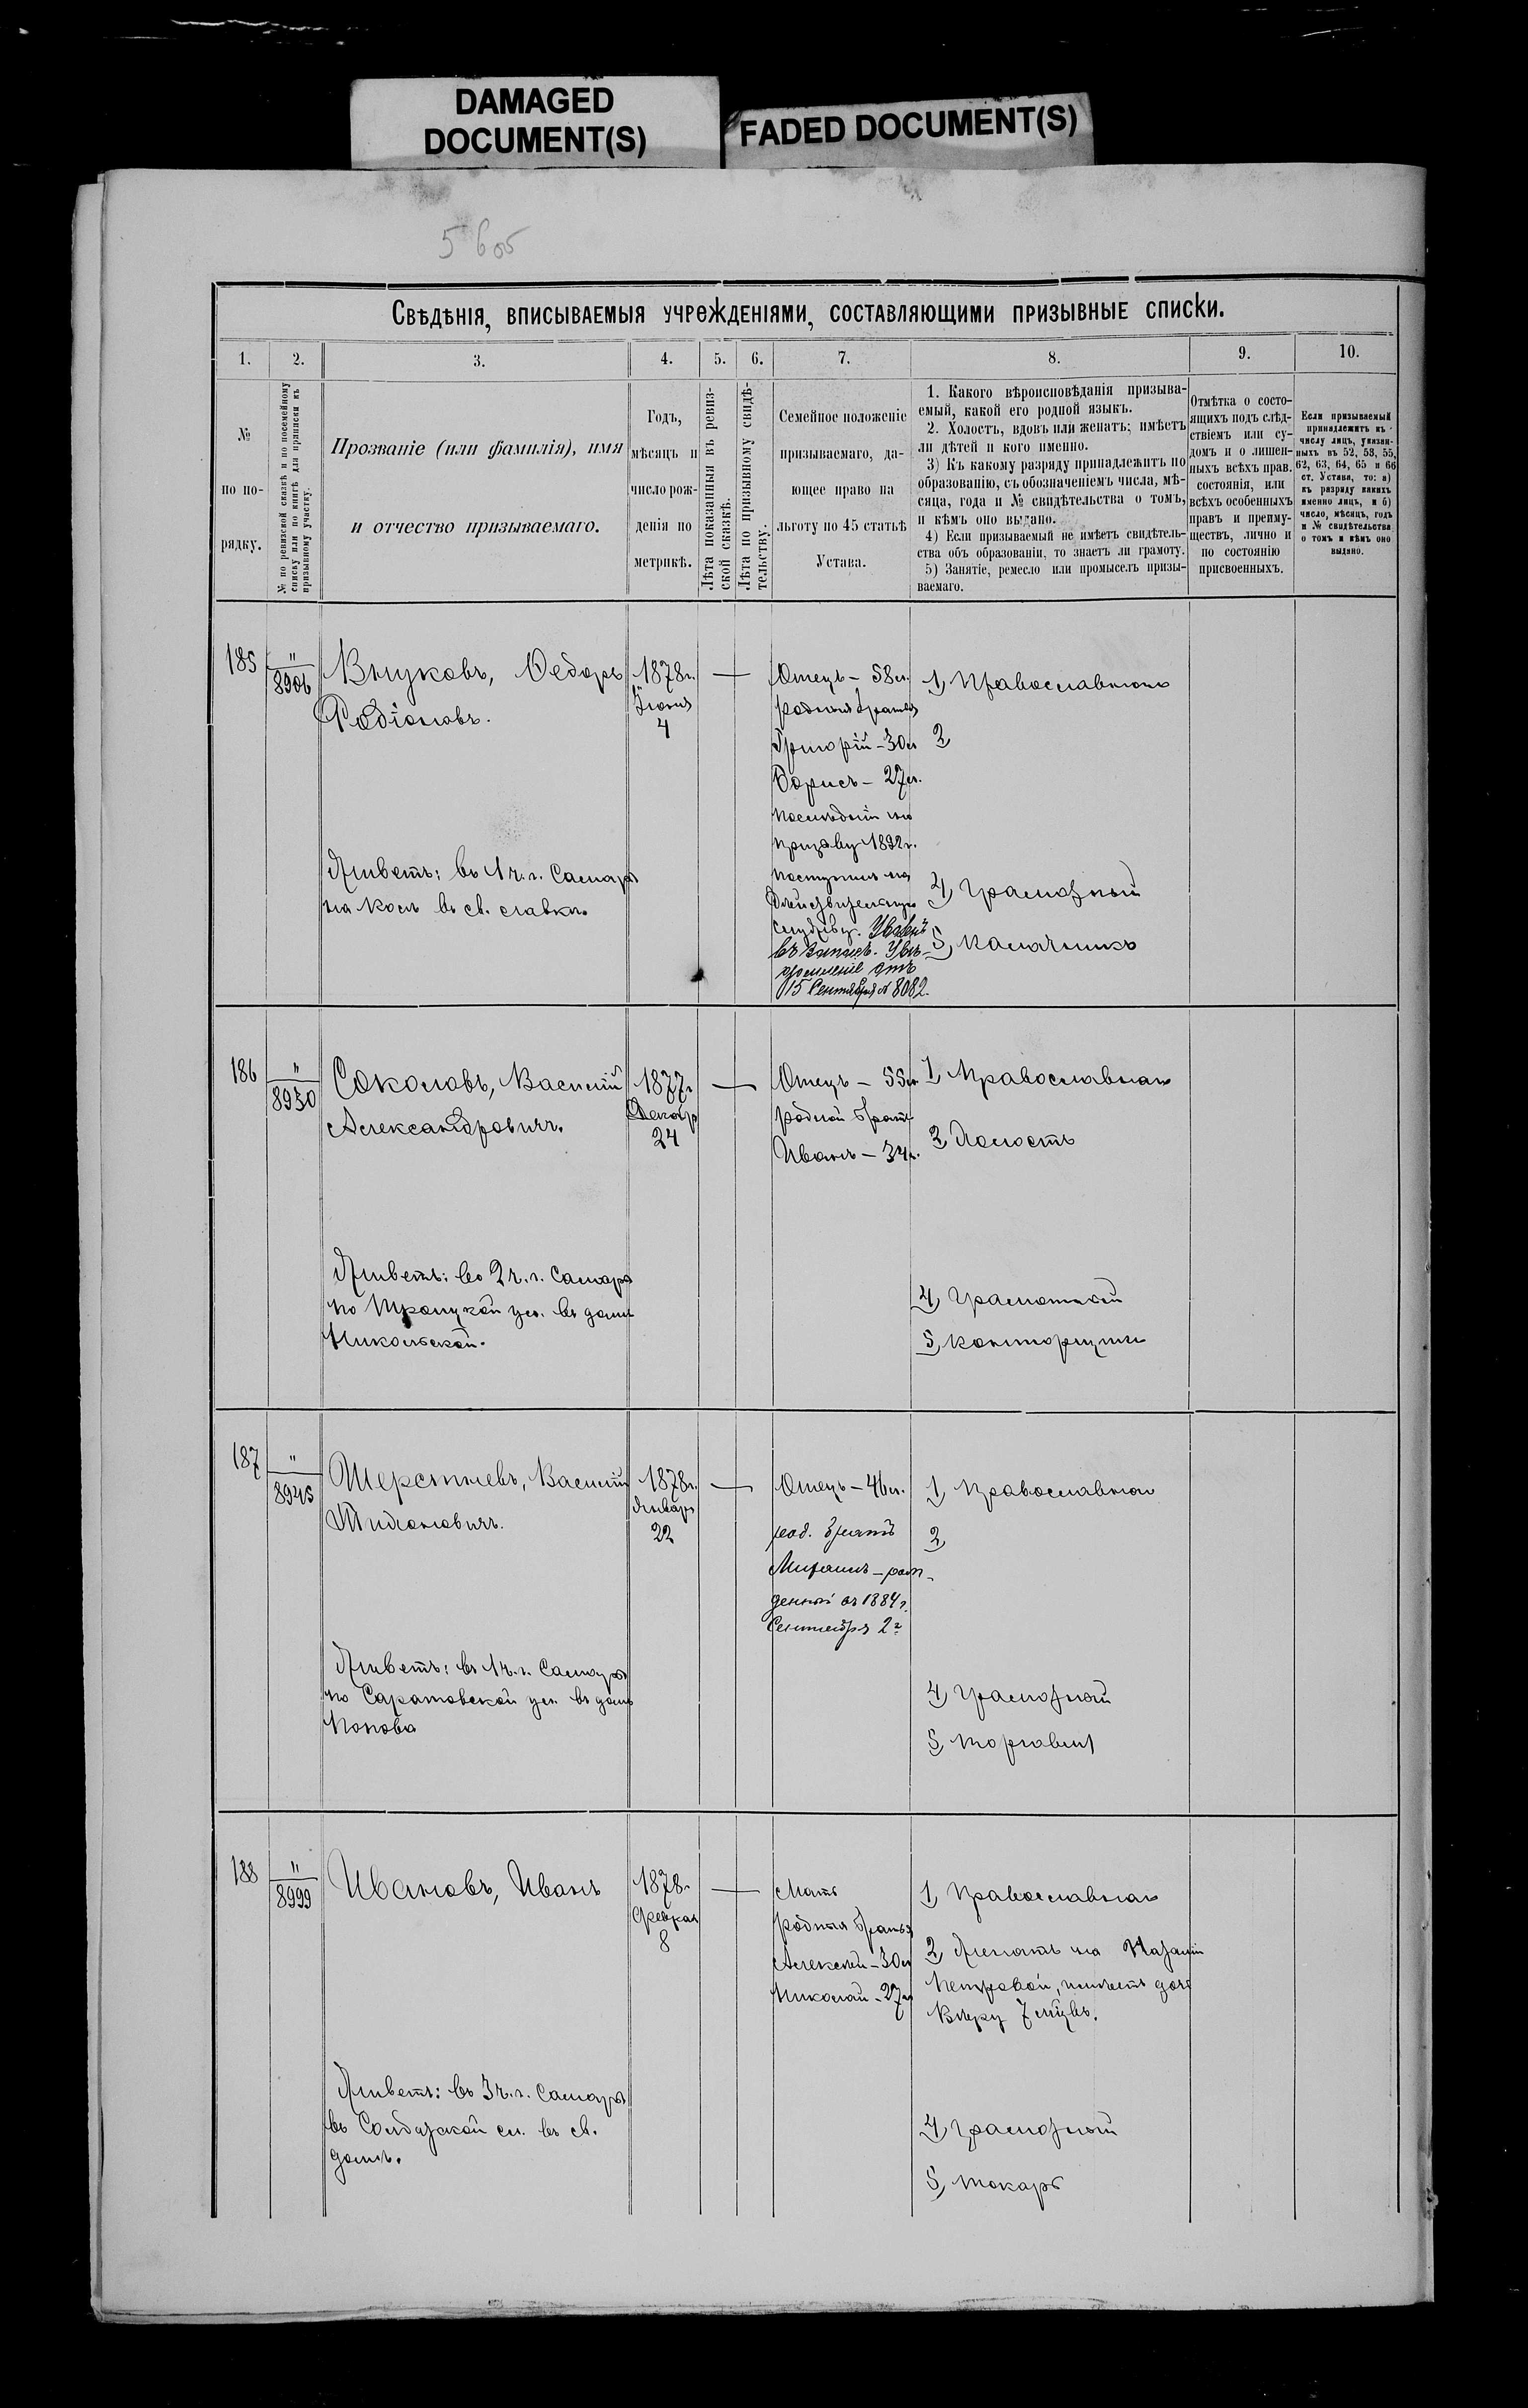 DAMAGED
DOCUMENT(S)
FADED DOCUMENT(S)
5605
Свѣдѣнія, вписываемыя учрежденіями, составляющими призывные списки.
1. 2. 3. 4. 5. 6. 7. 8. 9. 10.
№
по по-
рядку.
№ по ревизской сказкѣ и по посемейному
списку или по книгѣ для приписки къ
призывному участку.
Прозваніе (или фамилія), имя
и отчество призываемаго.
Годъ,
мѣсяцъ и
число рож-
денія по
метрикѣ.
Лѣта показанныя въ ревиз-
ской сказкѣ.
Лѣта по призывному свидѣ-
тельству.
Семейное положеніе
призываемаго, да-
ющее право на
льготу по 45 статьѣ
Устава.
1. Какого вѣроисповѣданія призыва-
емый, какой его родной языкъ.
2. Холостъ, вдовъ или женатъ; имѣетъ
ли дѣтей и кого именно.
3) Къ какому разряду принадлежитъ по
образованію, съ обозначеніемъ числа, мѣ-
сяца, года и № свидѣтельства о томъ,
и кѣмъ оно выдано.
4) Если призываемый не имѣетъ свидѣтель-
ства объ образованіи, то знаетъ ли грамоту.
5) Занятіе, ремесло или промыселъ призы-
ваемаго.
Отмѣтка о состо-
ящихъ подъ слѣд-
ствіемъ или су-
домъ и о лишен-
ныхъ всѣхъ прав.
состоянія, или
всѣхъ особенныхъ
правъ и преиму-
ществъ, лично и
по состоянію
присвоенныхъ.
Если призываемый
принадлежитъ къ
числу лицъ, указан-
ныхъ въ 52, 53, 55,
62, 63, 64, 65 и 66
ст. Устава, то: а)
къ разряду какихъ
именно лицъ, и б)
число, мѣсяцъ, годъ
и № свидѣтельства
о томъ и кѣмъ оно
выдано.
185
"
8906
Внуковъ, Федоръ
Родіоновъ.
Живетъ: въ 1 ч. г. Самары
на
въ св. лавкѣ
1878 г.
Іюня
4
—
Отецъ – 58 л.
родныя братья
Григорій – 30 л
Борисъ – 27 л.
послѣдній по
призыву 1892 г.
поступилъ на
дѣйствительную
службу. Уволенъ
въ запасъ. Увѣ-
домленіе отъ
15 Сентября № 8082.
1) Православнаго
2
4) Грамотный
5)
186
"
8930
Соколовъ, Василій
Александровичъ.
Живетъ: во 2 ч. г. Самары
по Троицкой ул. въ домѣ
Никольской.
1877 г.
Декабр
24
—
Отецъ – 55 л
родной братъ
Иванъ – 34 г.
1) Православнаго
2) Холостъ
4) Грамотный
5) Конторщикъ
187
"
8945
Шерстневъ, Василій
Живетъ: въ 1 ч. г. Самары
по Саратовской ул. въ домѣ
Попова
1878 г.
Январ
22
—
Отецъ – 46 л.
род. братъ
Михаилъ – рож-
денный въ 1884 г.
Сентября 2 г
1) Православнаго
2)
4) Грамотный
5) Торговецъ
188
"
8999
Ивановъ, Иванъ
Живетъ: въ 3 ч. г. Самары
въ Солдатской сл. въ св.
домѣ.
1878 г
Феврал
8
—
Мать
родныя братья
Алексѣй – 30 л
Николай – 27 л
1) Православнаго
2) Женатъ на
Петровой, имѣетъ дочь
Вѣру 7 мѣсцвъ.
4) Грамотный
5) Токарь